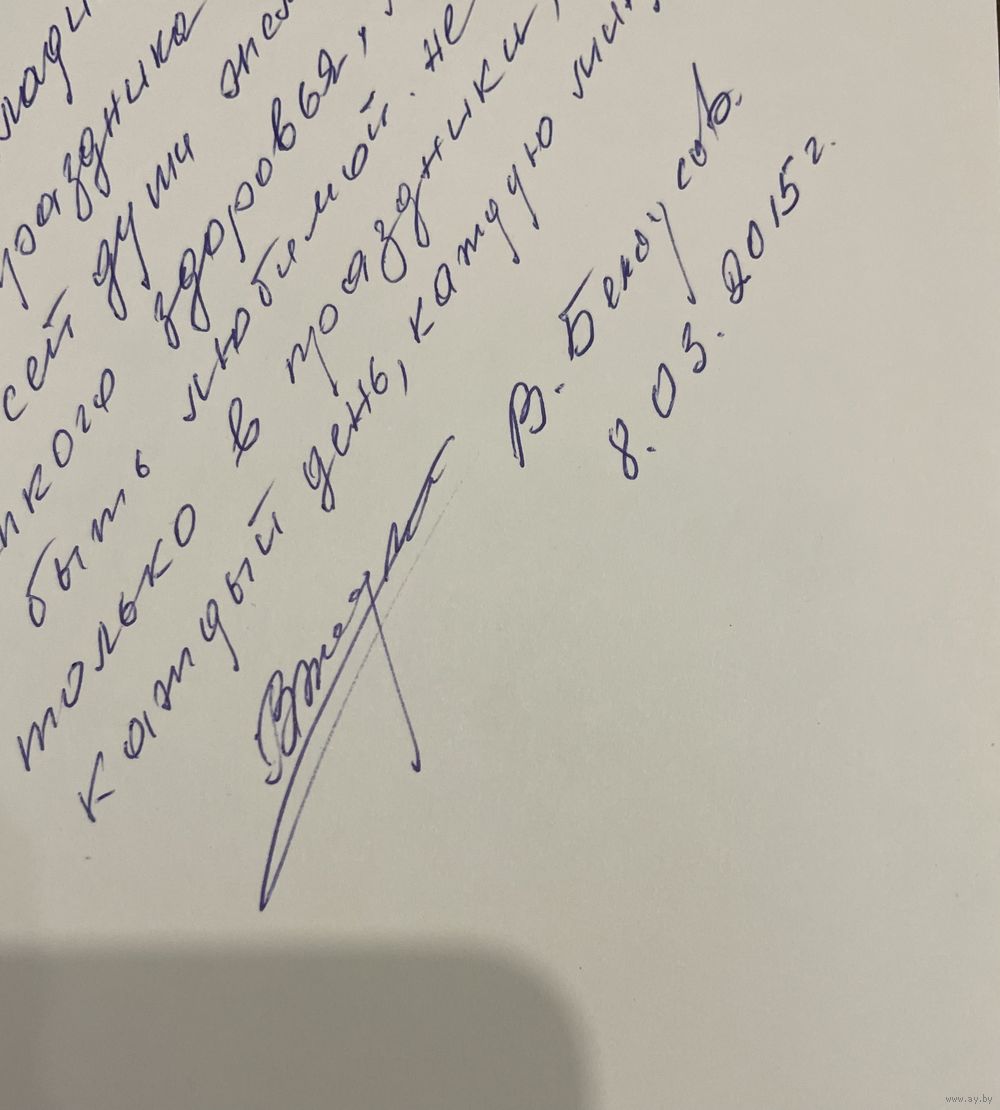 праздника
сей души жел
пкого здоровья,
быть любимой. не
только в праздники,
каждый день, каждую мин
В. Белоусов.
8.03.2015г.
www.ay.by